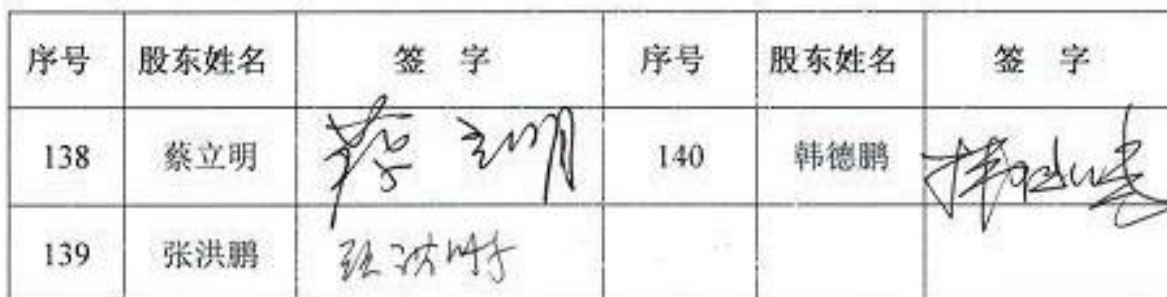 序号 股东姓名 签 字 序号 股东姓名 签 字
138 蔡立明 蔡立明 140 韩德鹏
139 张洪鹏